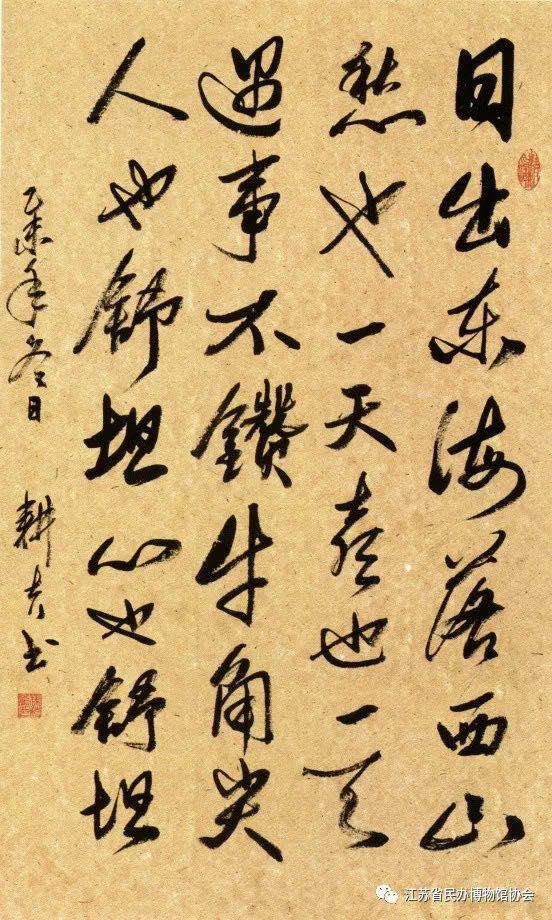 日出东海落西山
愁也一天喜也一天
遇事不钻牛角尖
人也舒坦心也舒坦
年冬日 耕夫书
江苏省民办博物馆协会